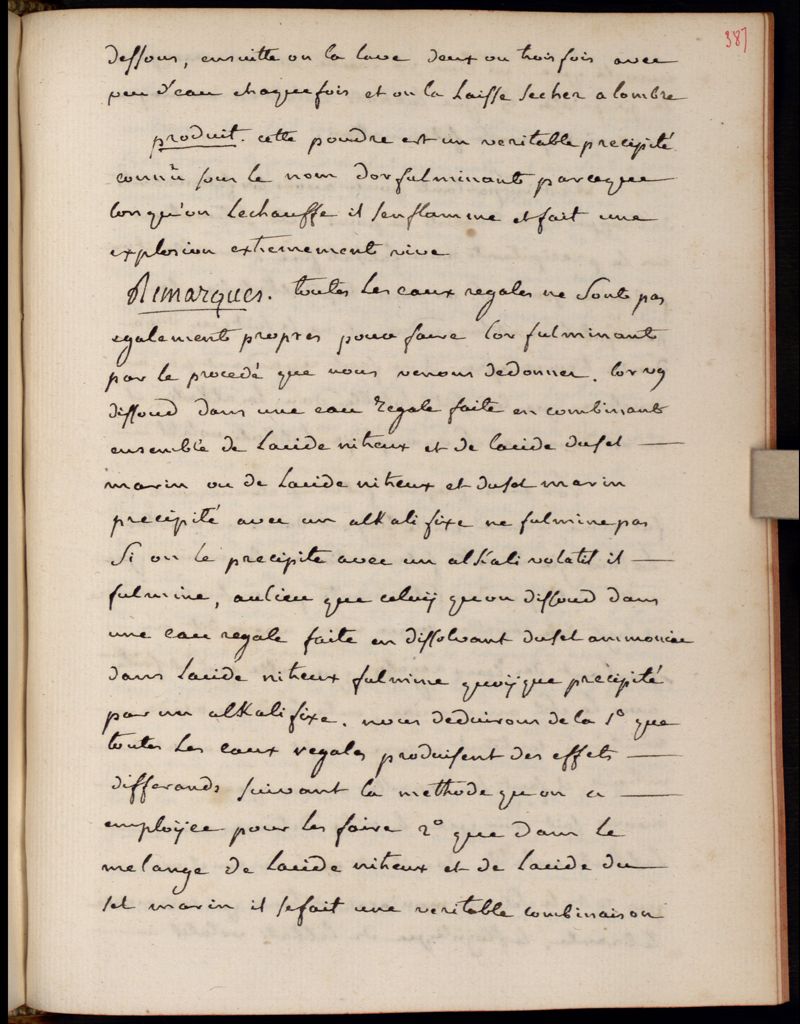 387
dessous, ensuitte on la lave deux ou trois fois avec
peu d'eau chaque fois et on la Laisse secher a lombre
produit. cette poudre est un veritable precipité
connû sous le nom dor fulminant parceque
lorsqu'on Lechauffe il senflamme et fait une
explosion extremement vive
Remarques. toutes Les eaux regales ne sont pas
egalement propres pour faire lor fulminant
par le procedé que nous venons dedonner. lor
dissoud dans une eau regale faite en combinant
ensemble de Lacide nitreux et de lacide dusel
marin ou de Lacide nitreux et dusel marin
precipité avec un alkali fixe ne fulmine pas
Si on le precipite avec un alkali volatil il
fulmine, aulieu que celuy quon dissoud dans
une eau regale faite en dissolvant dusel ammoniac
dans Lacide nitreux fulmine quoyque precipité
par un alkali fixe. nous deduirons de la 1° que
toutes Les eaux regales produisent des effets
differands suivant la methode quon a
employée pour les faire 2° que dans le
melange de Lacide nitreux et de Lacide du
sel marin il se fait une veritable combinaison